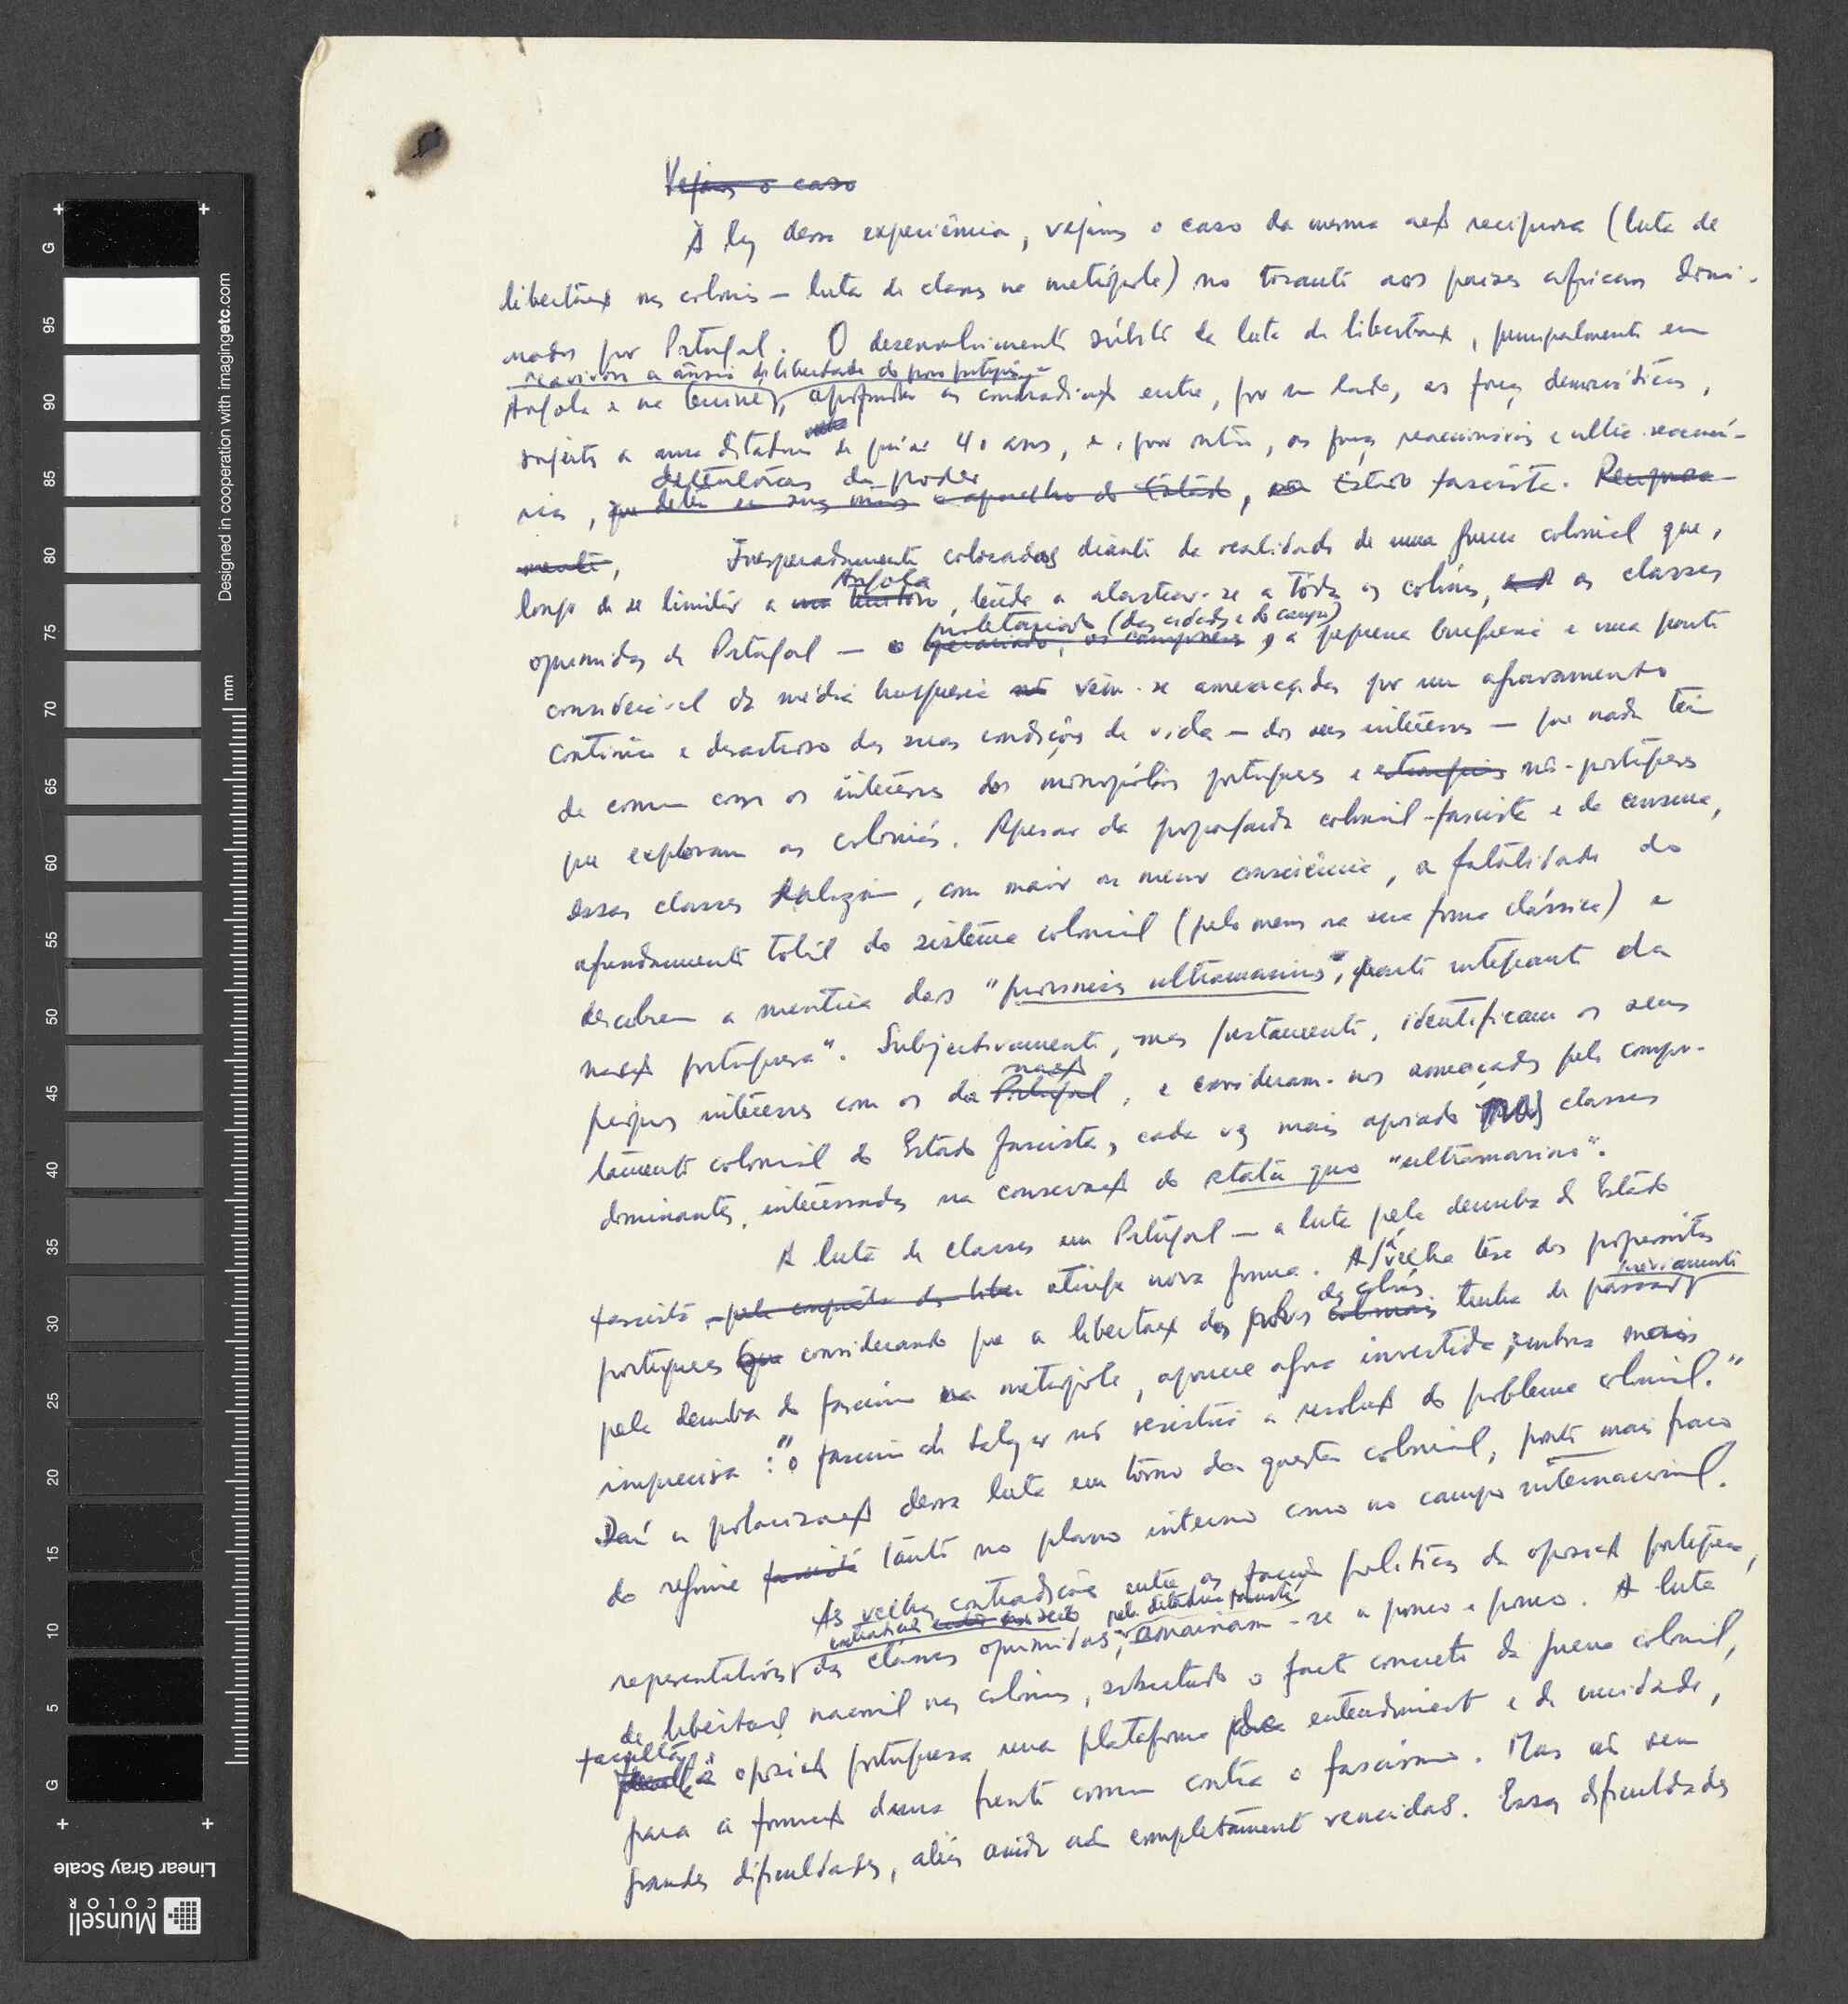 Vejamos o caso
À luz dessa experiência, vejamos o caso da mesma acção recíproca (luta de
libertação nas colónias — luta de classes na metrópole) no tocante aos países africanos domi-
nados por Portugal. O desenvolvimento súbito da luta de libertação, principalmente em
reavivou a ânsia de liberdade do povo português e
Angola e na Guiné, aprofundou as contradições entre, por um lado, as forças democráticas,
sujeitas a uma ditadura de quási 40 anos, e, por outro, as forças reaccionárias e ultra-reaccioná-
detentoras do poder
rias, que detêm em suas mãos o aparelho do Estado, Estado fascista. Recíproca-
mente,
Inesperadamente colocadas diante da realidade de uma guerra colonial que,
Angola
longe de se limitar a um território, tende a alastrar-se a tôdas as colónias, as classes
proletariado (das cidades e do campo)
oprimidas de Portugal — o operariado, os camponeses, a pequena burguesia e uma parte
considerável da média burguesia vêem-se ameaçadas por um agravamento
contínuo e desastroso das suas condições de vida — dos seus interêsses — que nada têm
de comum com os interêsses dos monopólios portugueses e estrangeiros não-portugueses
que exploram as colónias. Apesar da propaganda colonial-fascista e da censura,
essas classes realizam, com maior ou menor consciência, a fatalidade do
afundamento total do sistema colonial (pelo menos na sua forma clássica) e
descobrem a mentira das "províncias ultramarinas", parte integrante da
nação portuguesa". Subjectivamente, mas justamente, identificam os seus
nação
próprios interêsses com os da Portugal, e consideram-nos ameaçados pelo compor-
tamento colonial do Estado fascista, cada vez mais apoiado nas classes
dominantes, interessadas na conservação do statu quo "ultramarino".
A luta de classes em Portugal — a luta pela derruba do Estado
fascista, — pela conquista da atinge nova forma. A já velha tese dos progressistas
das colónias
previamente
portugueses que considerando que a libertação dos povos coloniais tenha de passar
pela derruba do fascismo na metrópole, aparece agora invertida, embora mais
imprecisa: "o fascismo de Salazar não resistirá à resolução do problema colonial."
Daí a polarização dessa luta em tôrno da questão colonial, ponto mais fraco
do regime fascista tanto no plano interno como no campo internacional.
As velhas contradições entre as facções políticas da oposição portuguesa,
pela ditadura fascista
representativas das classes oprimidas, esvaiam-se a pouco e pouco. A luta
de libertação nacional nas colónias, sobretudo o facto concreto da guerra colonial,
facultou
à oposição portuguesa uma plataforma para entendimento e de unidade,
para a formação duma frente comum contra o fascismo. Mas não sem
grandes dificuldades, aliás ainda não completamente vencidas. Essas dificuldades
Designed in cooperation with imagingetc.com
mm
G 95 90 85 80 75 70 65 60 55 50 45 40 35 30 25 20 15 10 5 G
Linear Gray Scale
Munsell
COLOR